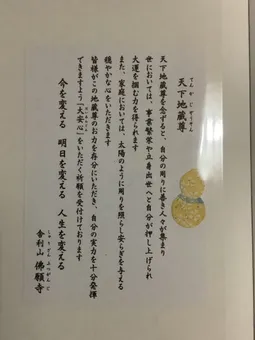 てんかじぞうそん
天下地蔵尊
天下地蔵尊を念ずると、自分の周りに善き人々が集まり
世においては、事業繁栄や立身出世へと自分が押し上げられ
大運を掴む力を得られます
また、家庭においては、太陽のように周りを照らし安らぎを与える
穏やかな心をいただきます
皆様がこの地蔵尊のお力を存分にいただき、自分の実力を十分発揮
できますよう「大安心」をいただく祈願を受付けております
今を変える　明日を変える　人生を変える
しゃりざん　ぶつがんじ
舎利山　佛願寺